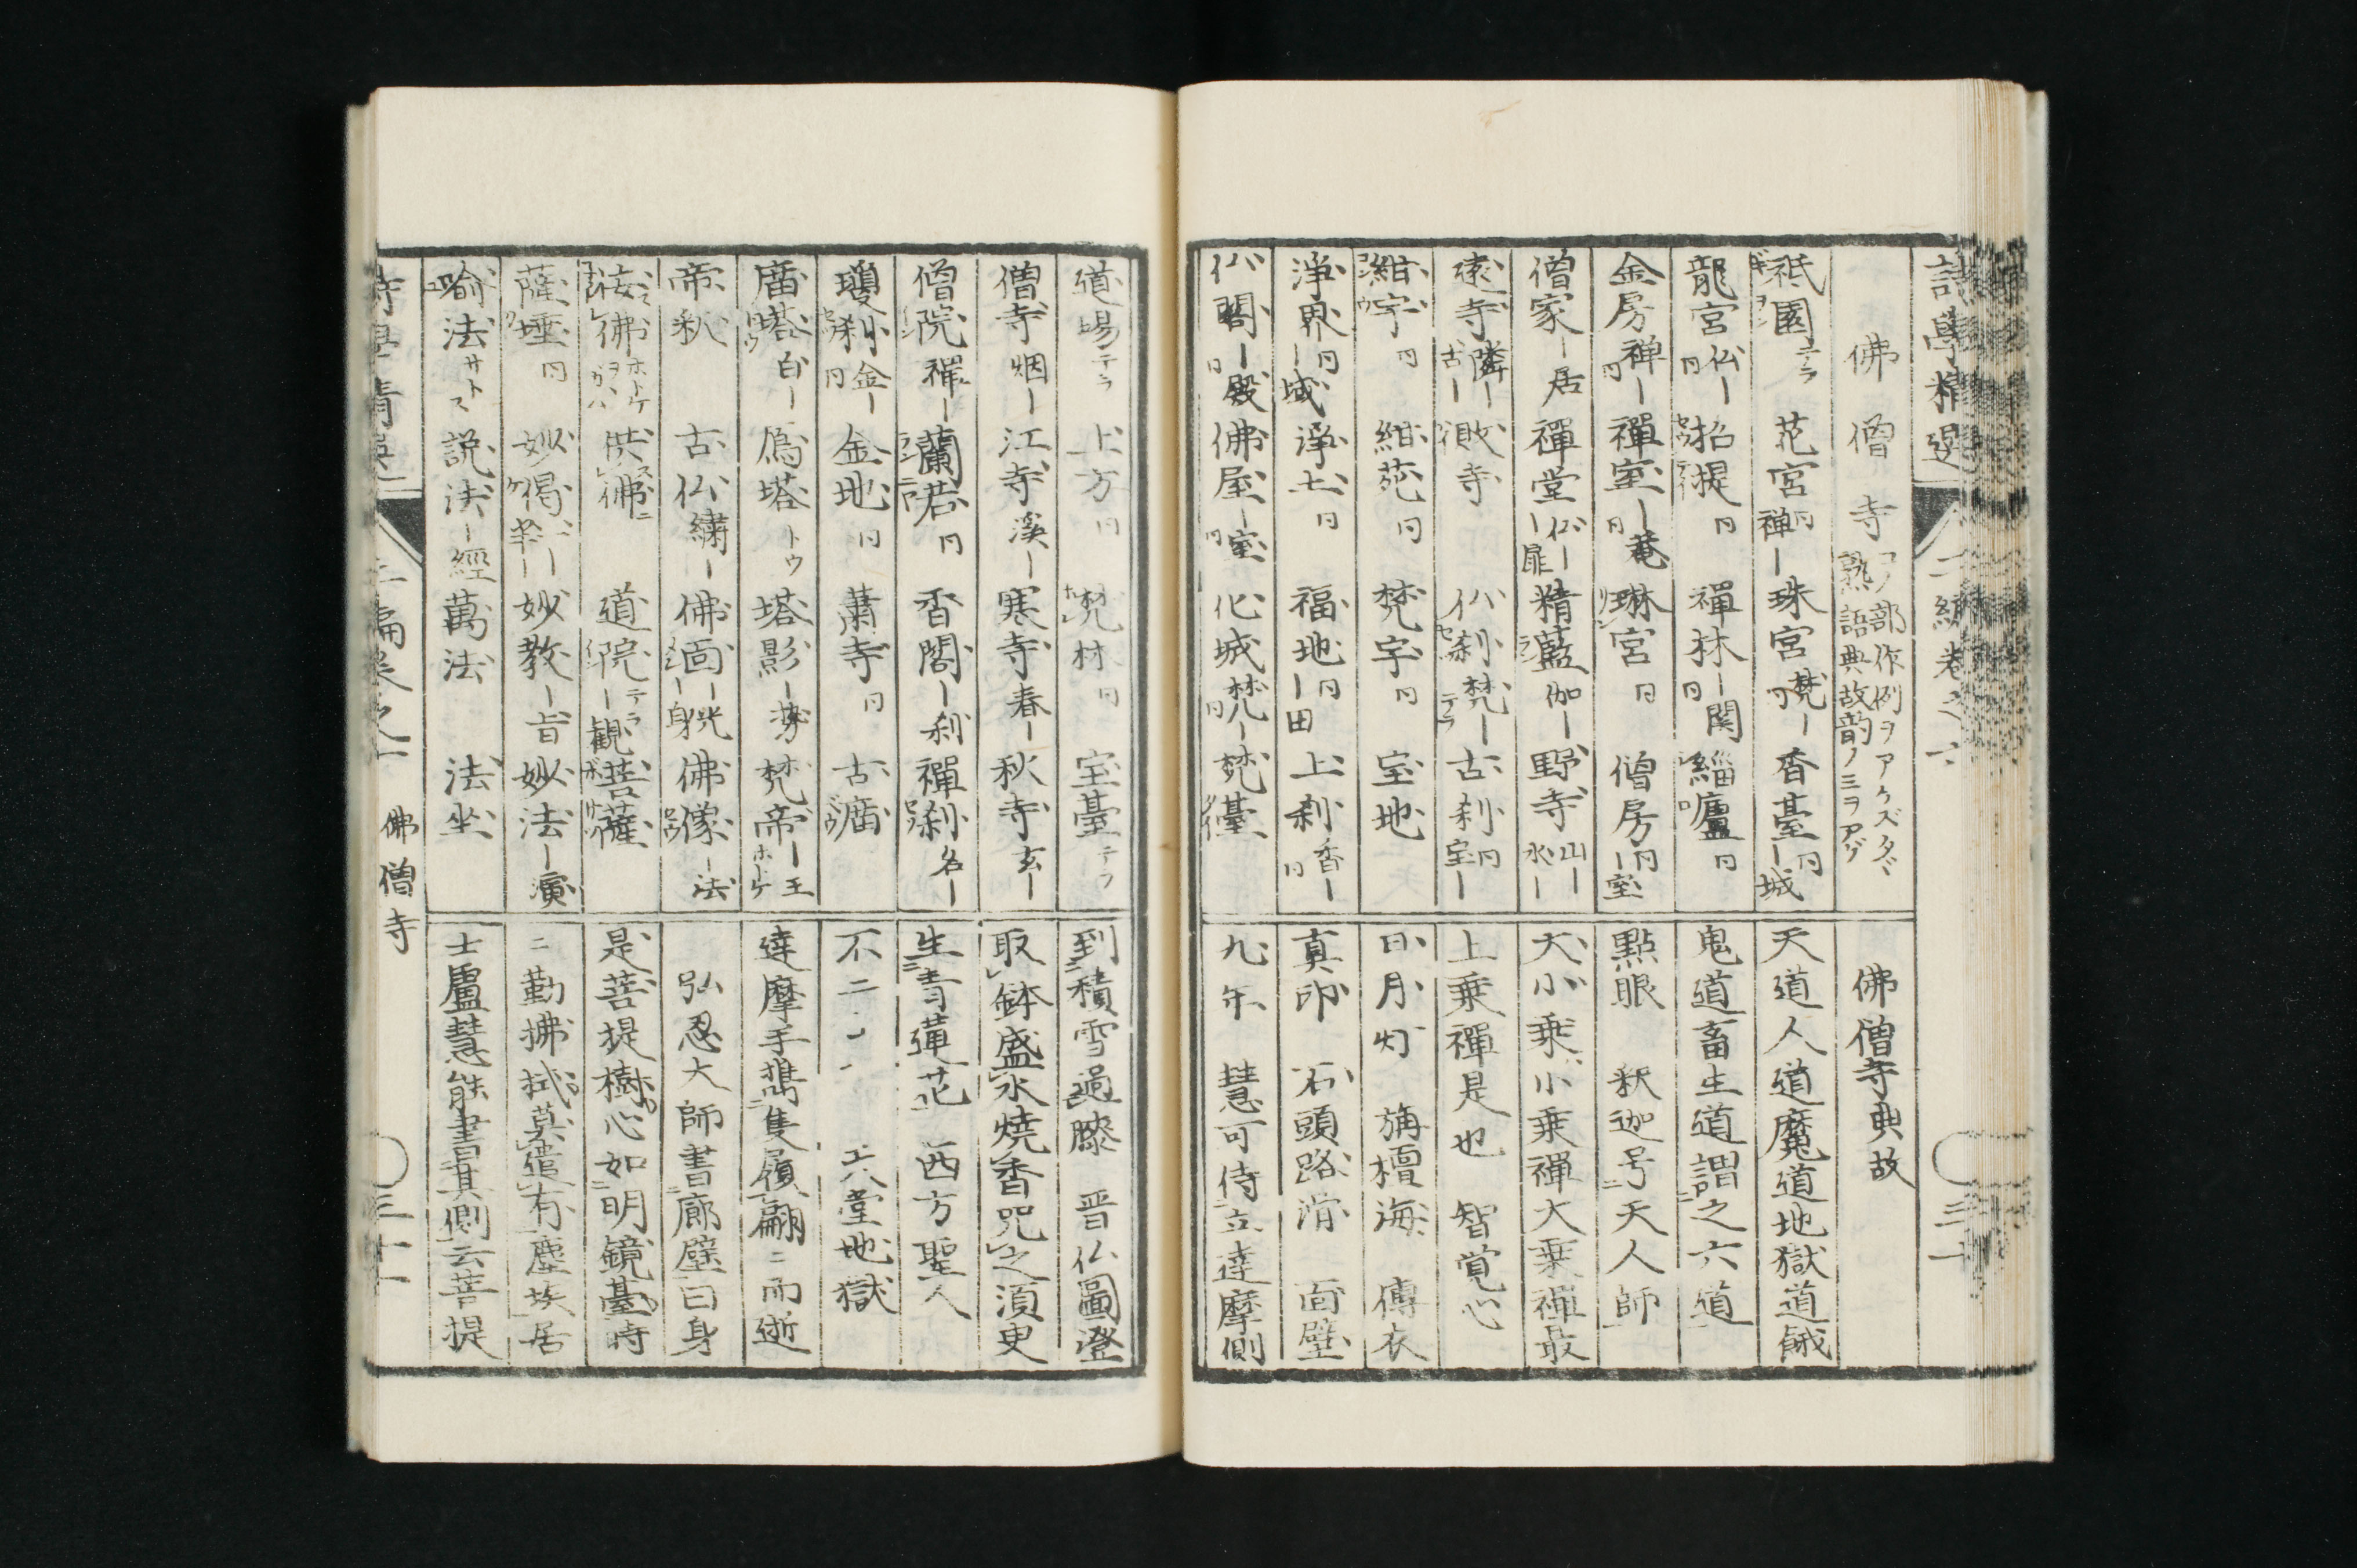 佛僧寺 コノ部作例ヲアケズタヾ熟語典故韵ノ三ヲアグ
祇園テラ 花宮禅ー 珠宮梵ー 香臺ー城
龍宮仏ー 招提 禪林ー関 緇廬
金房禅ー 禪室ー菴 琳宮 僧房ー室
僧家ー居 禪堂仏ー扉 精藍伽ー 野寺山ー水ー
遠寺隣ー古ー 敗寺 仏刹梵ーテラ 古刹宝ー
紺宇 紺苑 梵宇 宝地
浄界ー域 浄土 福地ー田 上刹香ー
仏閣ー殿 佛屋ー室 化城梵ー 梵臺
佛僧寺典故
天道人道魔道地獄道餓
鬼道畜生道謂之六道
點眼 釈迦号天人師
大小乗小乗禪大乗禪最
上乗禪是也 智覚心
日月灯 旃檀海 傳衣
真印 石頭路滑 面壁
九年 慧可侍立達摩側
道場テラ 上方 梵林 宝臺テラ
僧寺烟ー 江寺溪ー 寒寺春ー 秋寺玄ー
僧院禪ー 蘭若 香閣ー刹 禪刹名ー
瓊刹金ー 金地 蕭寺 古廟
廟塔白ー 塔トウ 塔影ー勢 梵帝ー王ホトケ
帝釈 古仏繍ー 佛面ー光ー身 佛像ー法
佛ホトケ 供佛 道院テラー観 菩薩
薩埵 妙偈 妙教ー旨 妙法ー演
喻法サトス 説法ー經 萬法 法坐
到積雪過膝 晋仏圖澄
取鉢盛水燒香咒之湏臾
生青蓮花 西方聖人
不二 天堂地獄
達摩手携隻履翩ニ而逝
弘忍大師書廊壁曰身
是菩提樹心如明鏡臺時
ニ勤拂拭莫遣有塵埃居
士盧慧能書其側云菩提
佛僧寺
三十一